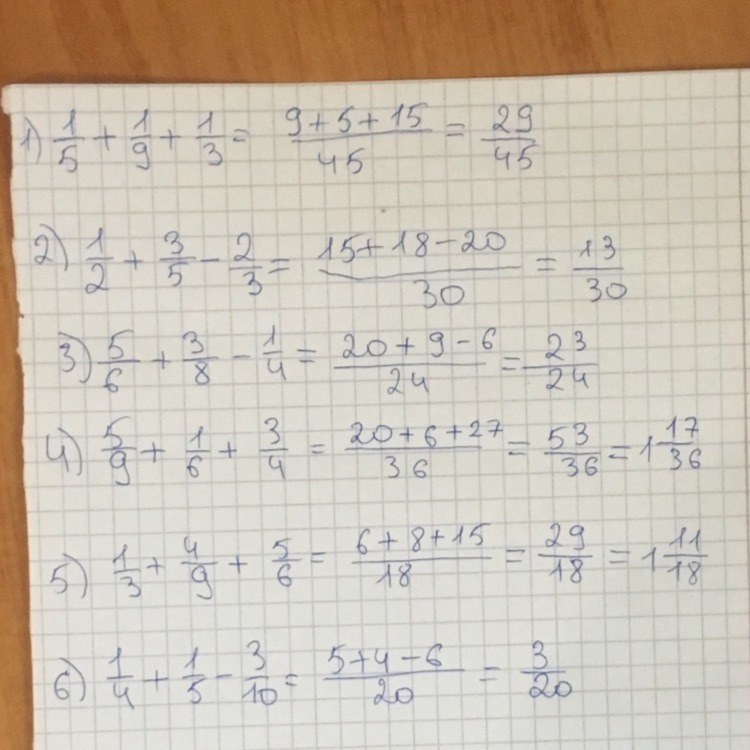 1) 1/5 + 1/9 + 1/3 = (9+5+15)/45 = 29/45
2) 1/2 + 3/5 - 2/3 = (15+18-20)/30 = 13/30
3) 5/6 + 3/8 - 1/4 = (20+9-6)/24 = 23/24
4) 5/9 + 1/6 + 3/4 = (20+6+27)/36 = 53/36 = 1 17/36
5) 1/3 + 4/9 + 5/6 = (6+8+15)/18 = 29/18 = 1 11/18
6) 1/4 + 1/5 - 3/10 = (5+4-6)/20 = 3/20